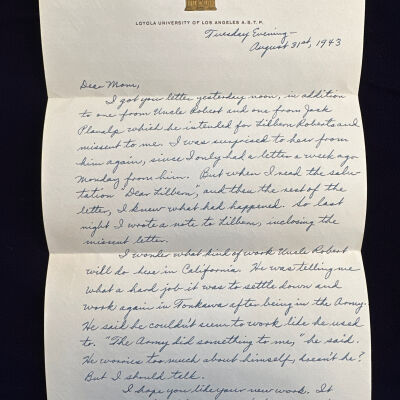 LOYOLA UNIVERSITY OF LOS ANGELES A.S.T.P.
Tuesday Evening—
August 31st, 1943
Dear Mom,
I got your letter yesterday noon, in addition
to one from Uncle Robert and one from Jack
Planalp which he intended for Lilbern Roberts and
missent to me. I was surprised to hear from
him again, since I only had a letter a week ago
Monday from him. But when I read the salu-
tation "Dear Lilbern," and then the rest of the
letter, I knew what had happened. So last
night I wrote a note to Lilbern, inclosing the
missent letter.
I wonder what kind of work Uncle Robert
will do here in California. He was telling me
what a hard job it was to settle down and
work again in Tonkawa after being in the Army.
He said he couldn't seem to work like he used
to. "The Army did something to me," he said.
He worries too much about himself, doesn't he?
But I should talk.
I hope you like your new work. It